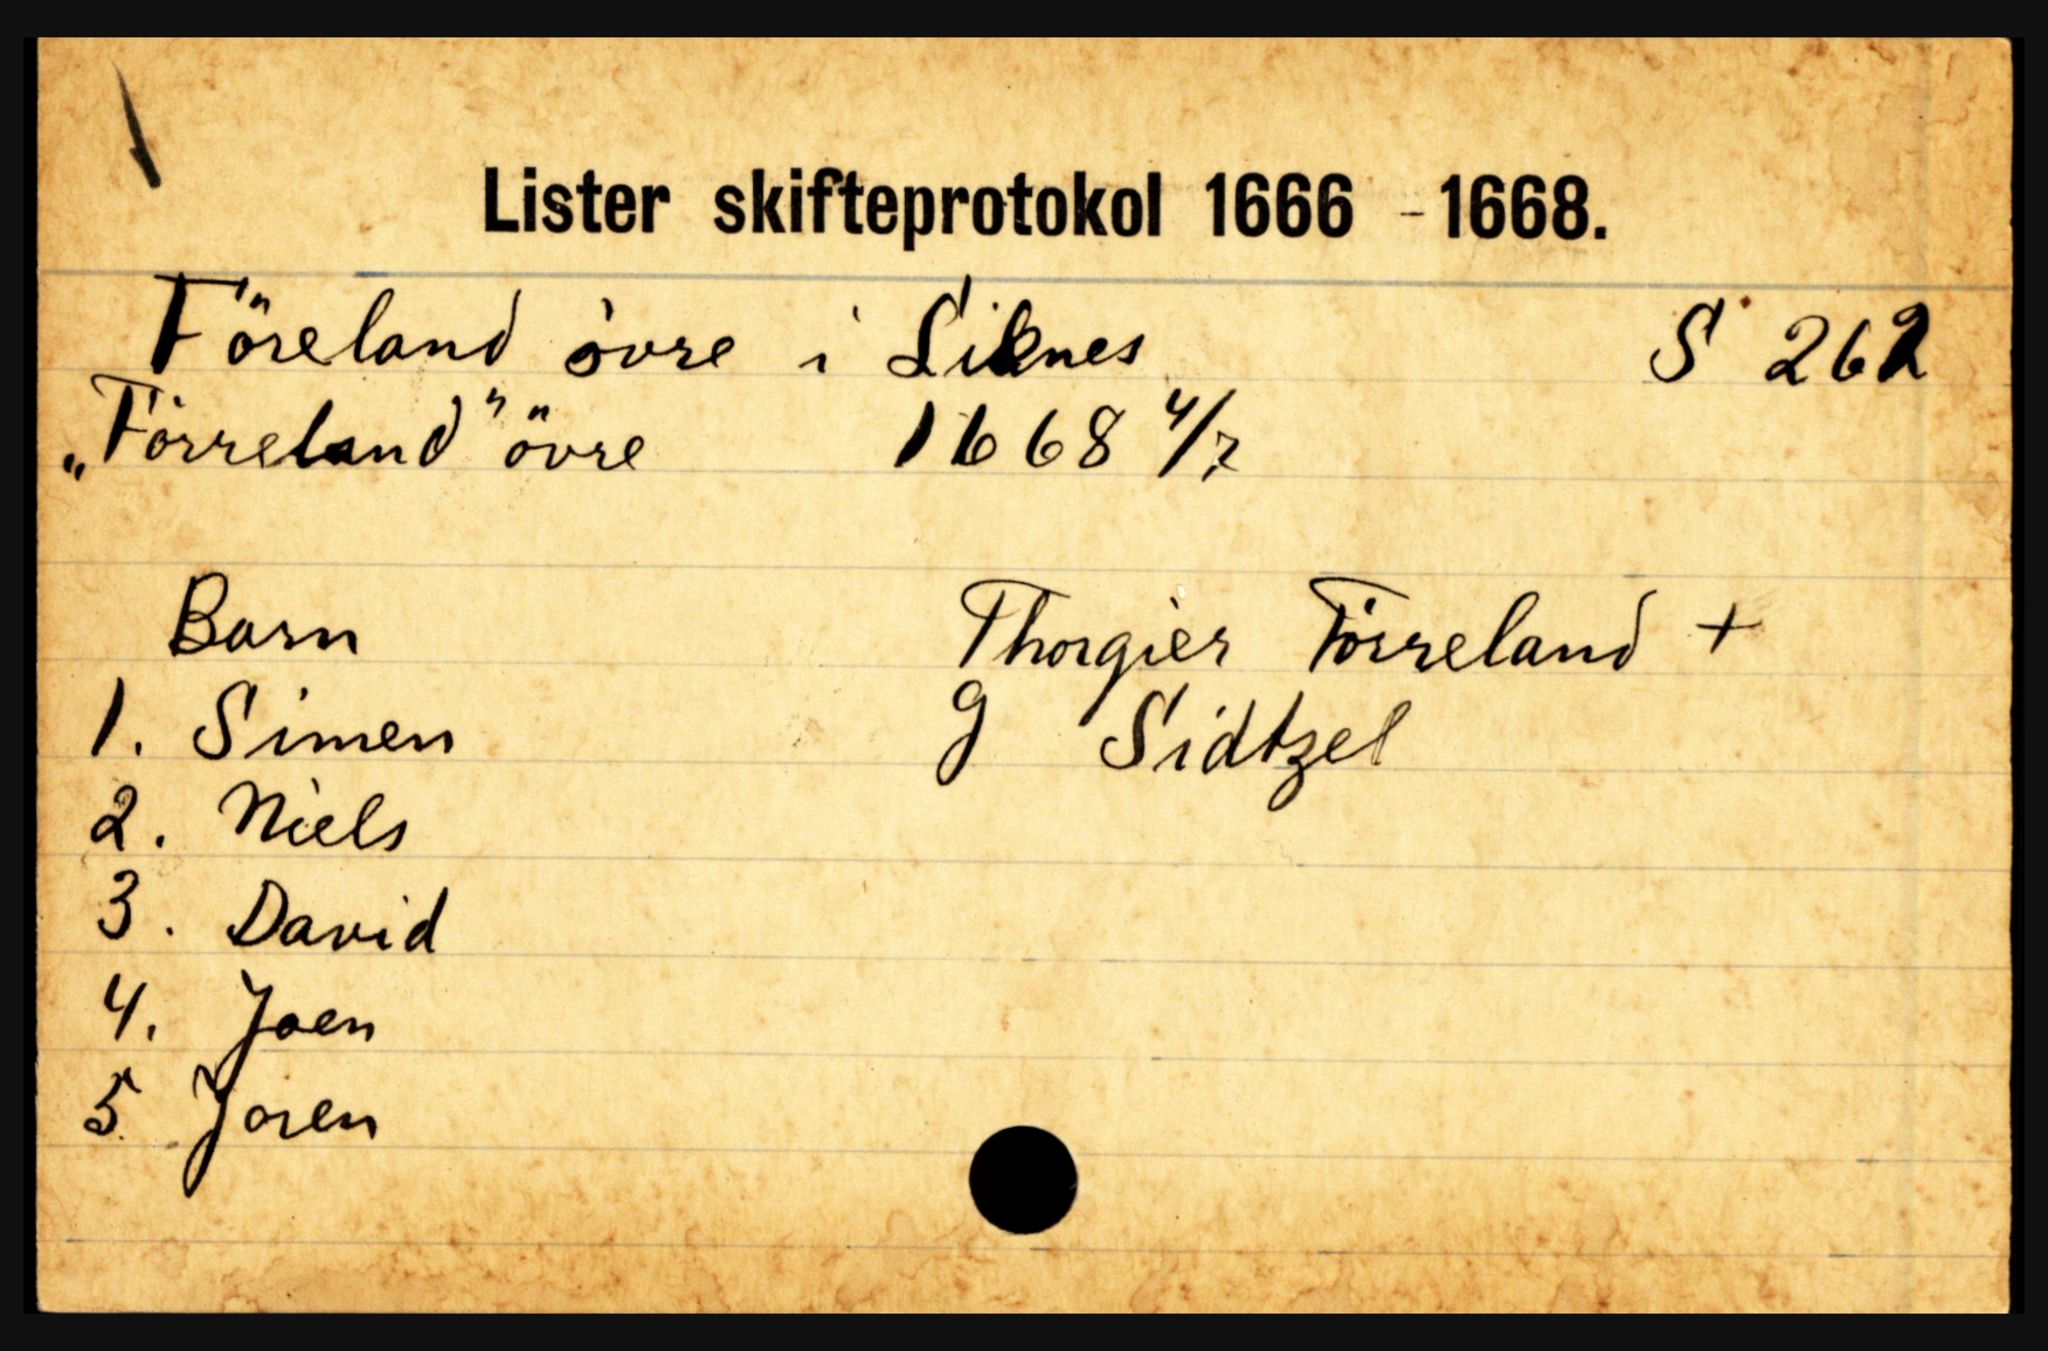 Lister skifteprotokol 1666 - 1668.
Föreland övre i Liknes S 262
"Förreland" övre 1668 4/7
Barn Thorgier Förreland +
1. Simen g Sidtzel
2. Niels
3. David
4. Joen
5. Joren